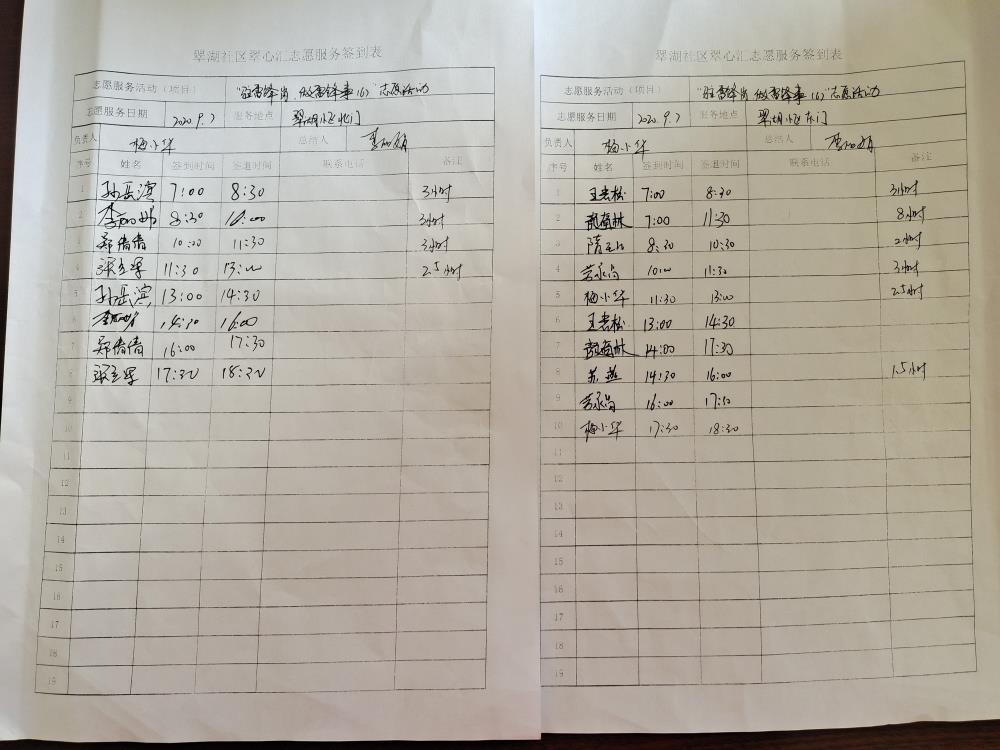 翠湖社区翠心汇志愿服务签到表
志愿服务活动（项目） "驻雷锋岗 做雷锋事(6)"志愿活动
志愿服务日期 2020.9.7 服务地点 翠湖小区北门
负责人 梅小华 总结人
序号 姓名 签到时间 签退时间 联系电话 备注
1 孙岳滨 7:00 8:30 3小时
2 8:30 10:00 3小时
3 郑倩倩 10:00 11:30 3小时
4 11:30 13:00 2.5小时
5 孙岳滨 13:00 14:30
6 14:30 16:00
7 郑倩倩 16:00 17:30
8 17:30 18:30
9
10
11
12
13
14
15
16
17
18
19
翠湖社区翠心汇志愿服务签到表
志愿服务活动（项目） "驻雷锋岗 做雷锋事(6)"志愿活动
志愿服务日期 2020.9.7 服务地点 翠湖小区东门
负责人 梅小华 总结人
序号 姓名 签到时间 签退时间 联系电话 备注
1 王老松 7:00 8:30 3小时
2 7:00 11:30 8小时
3 8:30 10:30 2小时
4 10:00 11:30 3小时
5 梅小华 11:30 13:00 2.5小时
6 王老松 13:00 14:30
7 14:00 17:30
8 苏燕 14:30 16:00 1.5小时
9 16:00 17:30
10 梅小华 17:30 18:30
11
12
13
14
15
16
17
18
19